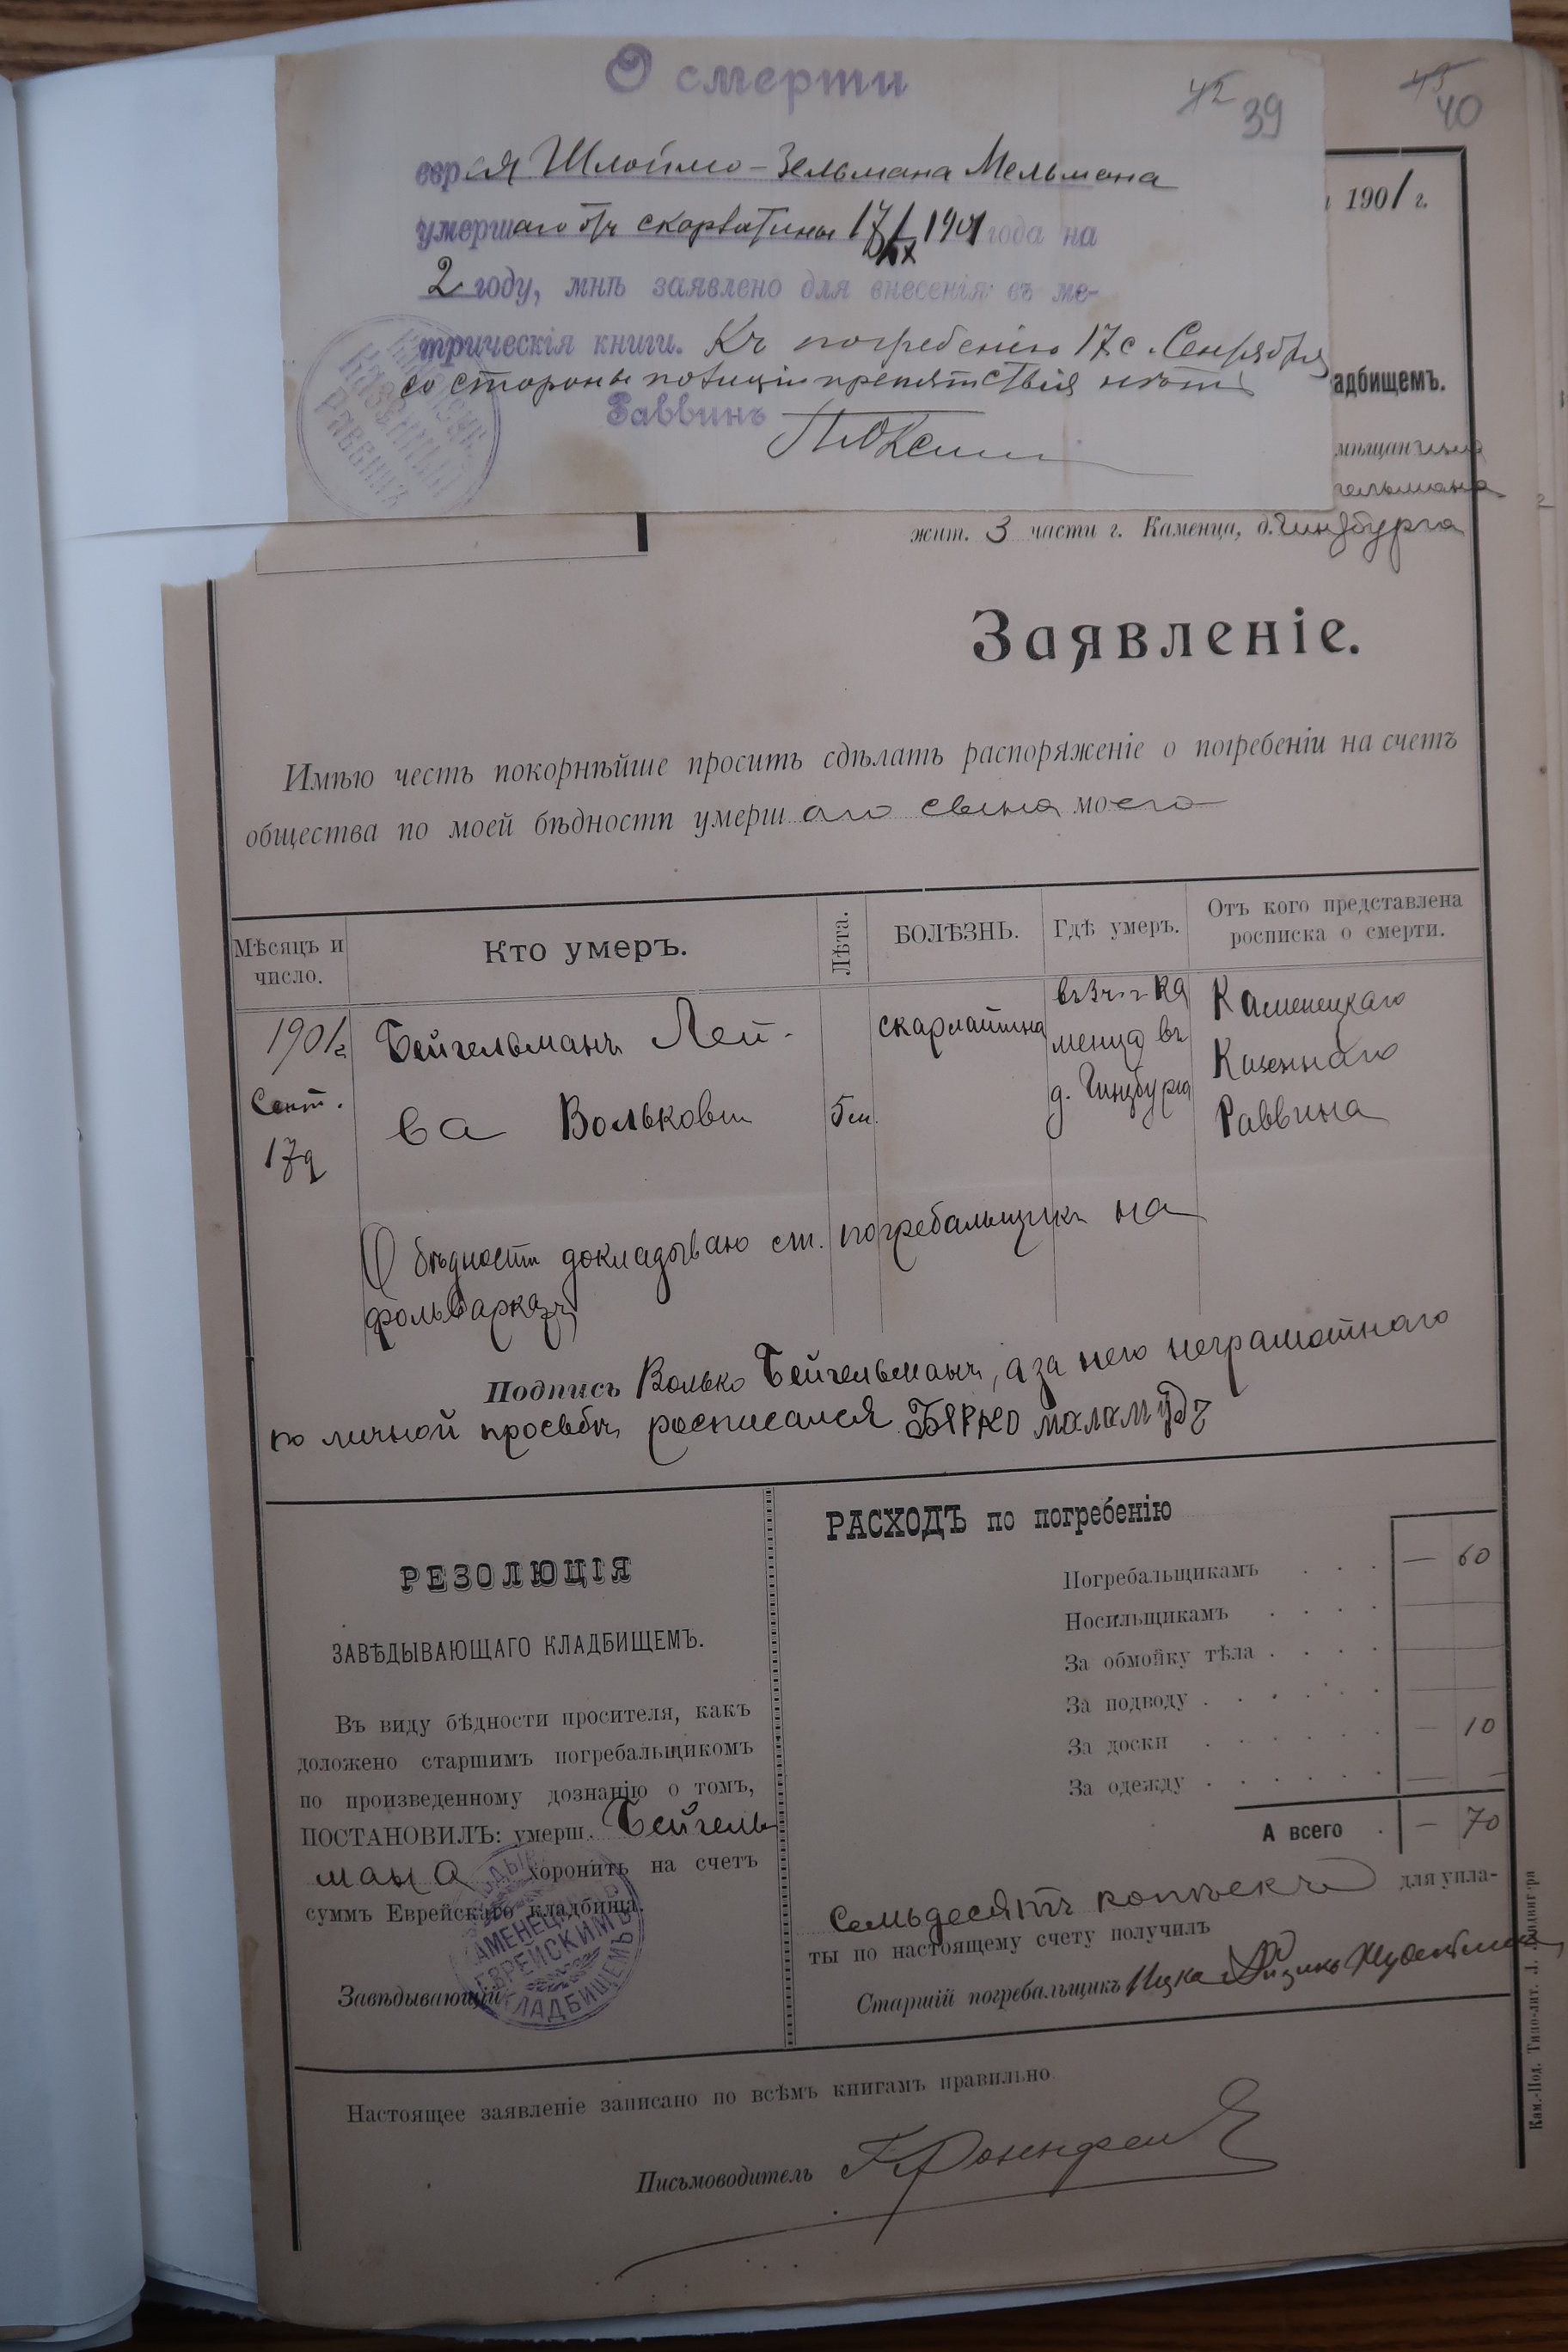 О смерти
42 39
45 40
еврея Шлоймо-Зельмана Мельмана
умершаго отъ скарлатины 17/IX 1901 года на
2 году, мнѣ заявлено для внесенія въ ме-
трическія книги. Къ погребенію 17 с. Сентября
со стороны полиціи препятствія нѣтъ
Раввинъ
КАЗЕННЫЙ
РАВВИНЪ
1901 г.
адбищемъ.
мѣщанина
гельмана
жит. 3 части г. Каменца, д. Гинзбурга
Заявленіе.
Имѣю честь покорнѣйше просить сдѣлать распоряженіе о погребеніи на счетъ
общества по моей бѣдности умершаго сына моего
Мѣсяцъ и число. Кто умеръ. Лѣта. БОЛѢЗНЬ. Гдѣ умеръ. Отъ кого представлена росписка о смерти.
1901 г. Бейгельманъ Лей- скарлатина въ 3 ч. г. Ка Каменецкаго
Сент. ва Вольковъ 5 м. менца въ Казеннаго
17 д. д. Гинзбурга Раввина
О бѣдности докладываю ст. погребальщикъ на
фольваркахъ
Подпись Волько Бейгельманъ, а за него неграмотнаго
по личной просьбѣ росписался Берко Маламудъ
РЕЗОЛЮЦІЯ
ЗАВѢДЫВАЮЩАГО КЛАДБИЩЕМЪ.
Въ виду бѣдности просителя, какъ
доложено старшимъ погребальщикомъ
по произведенному дознанію о томъ,
ПОСТАНОВИЛЪ: умерш. Бейгель
мана хоронить на счетъ
суммъ Еврейскаго кладбища.
Завѣдывающій
КАМЕНЕЦКИМЪ
ЕВРЕЙСКИМЪ
КЛАДБИЩЕМЪ
РАСХОДЪ по погребенію
Погребальщикамъ . . . — 60
Носильщикамъ . . . .
За обмойку тѣла . . . .
За подводу . . . . .
За доски . . . . . . — 10
За одежду . . . . . . — —
А всего . — 70
Семьдесятъ копѣекъ для упла-
ты по настоящему счету получилъ
Старшій погребальщикъ Ицка
Настоящее заявленіе записано по всѣмъ книгамъ правильно
Письмоводитель
Кам.-Под. Типо-лит.